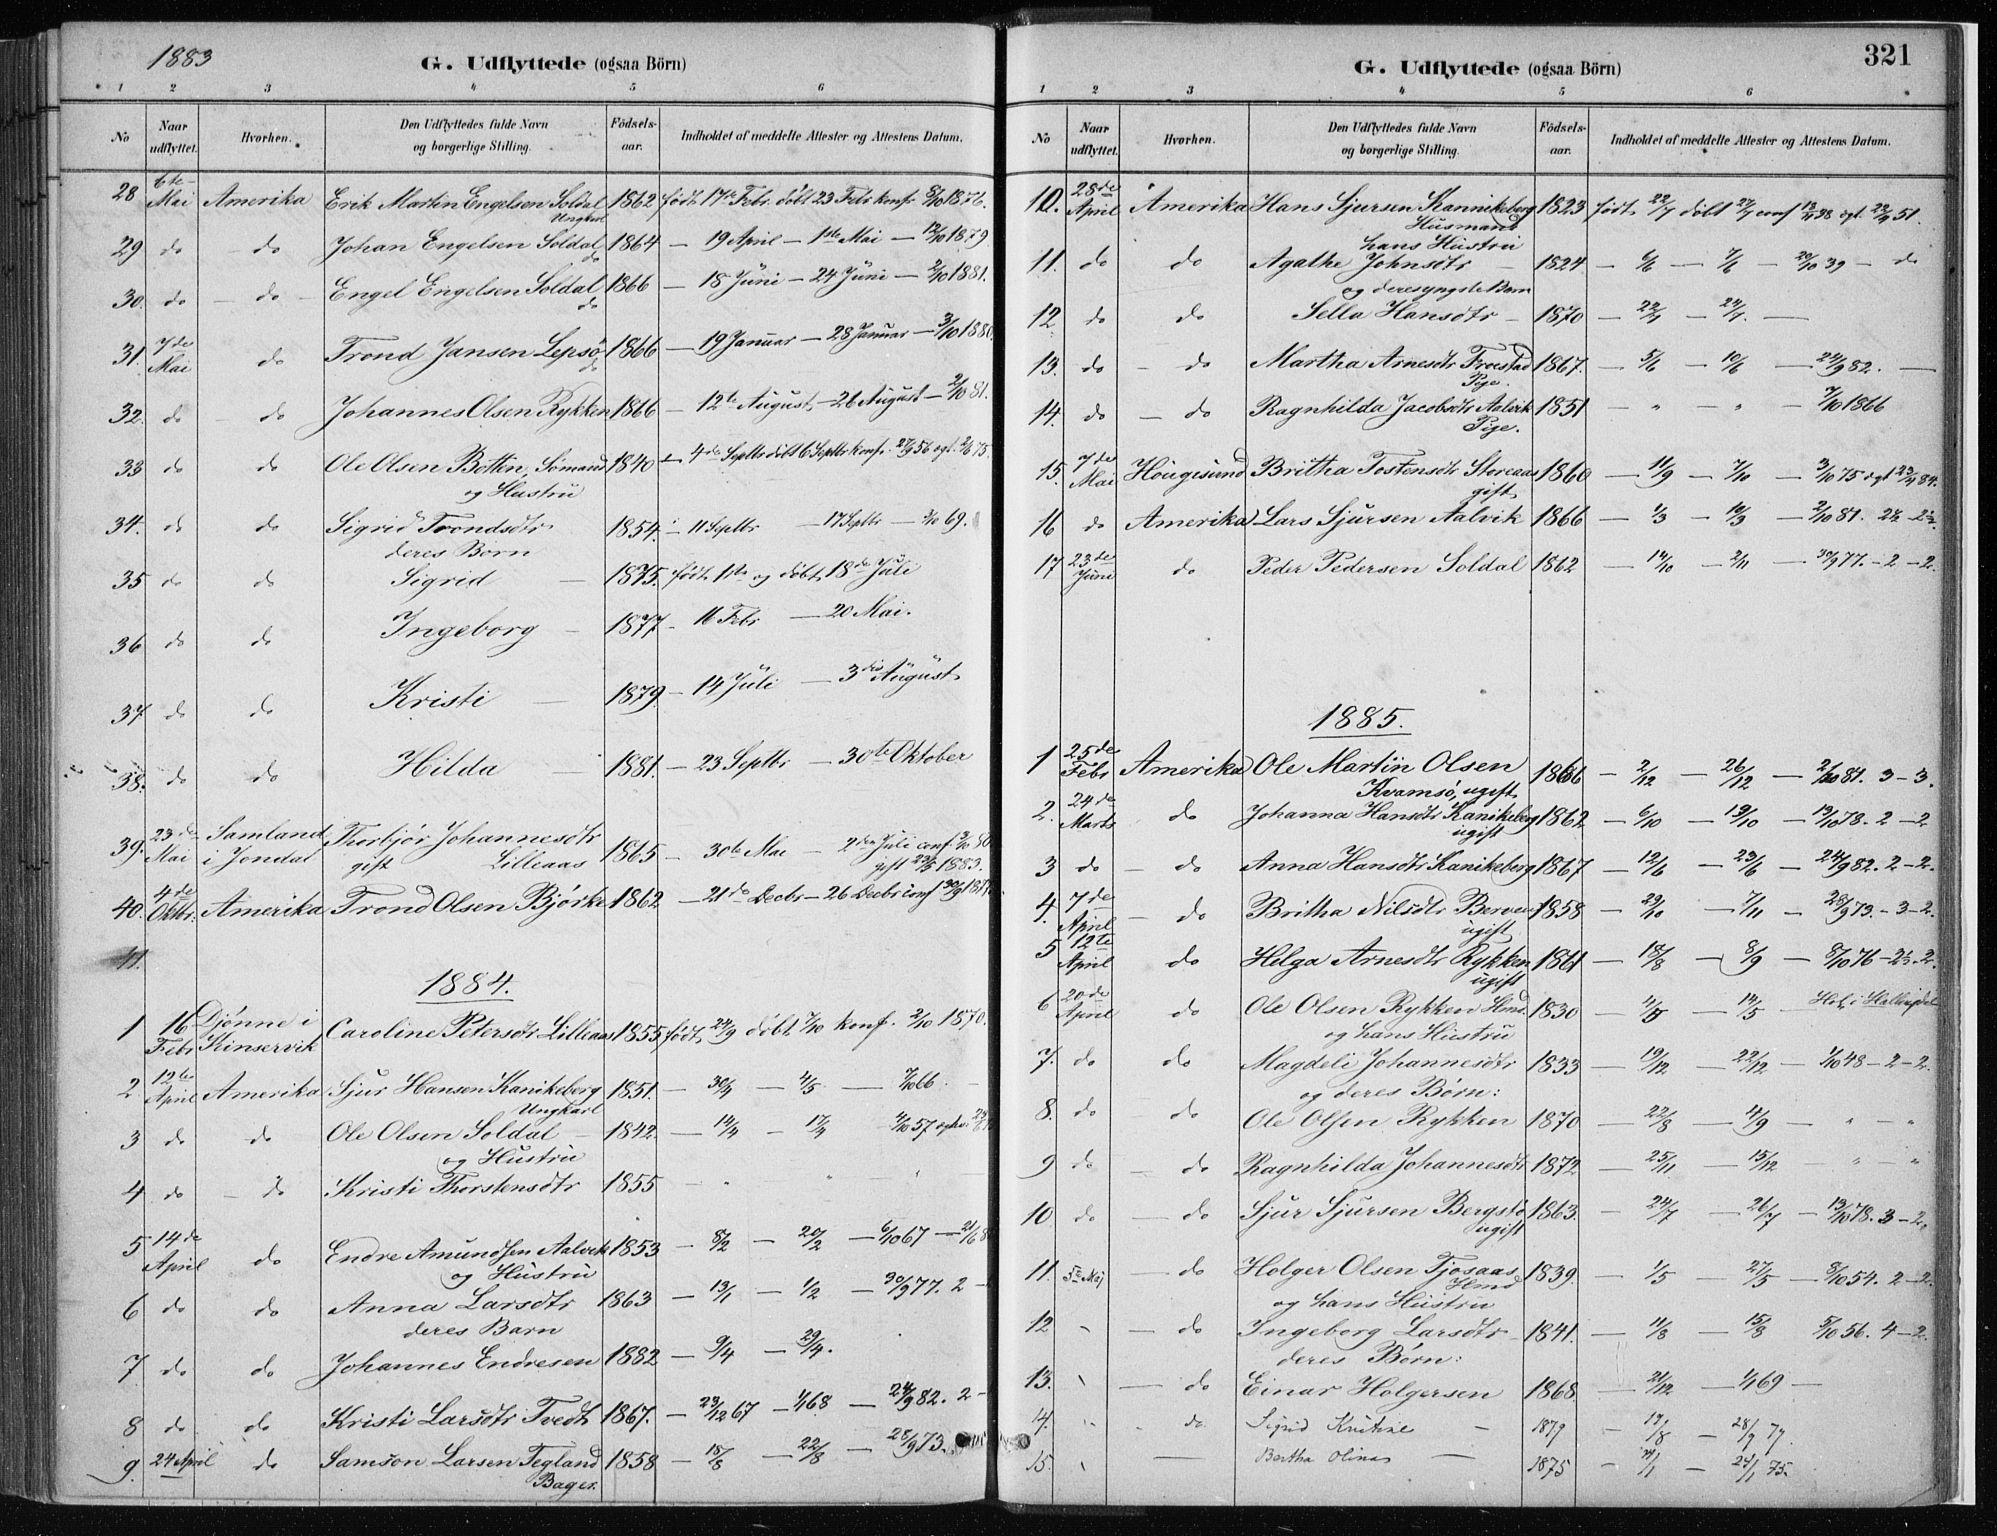 1883
G. Udflyttede (ogsaa Börn)
1 2 3 4 5 6
No Naar udflyttet. Hvorhen. Den Udflyttedes fulde Navn og borgerlige Stilling. Födsels-aar. Indholdet af meddelte Attester og Attestens Datum.
28 6te Mai Amerika Erik Martin Engelsen Soldal 1862 født 17de Febr. døbt 23 Febr konf. 8/10 1876.
Ungkarl
29 do do Johan Engelsen Soldal 1864 — 19 April — 1ste Mai — 12/10 1879
do
30. do — do — Engel Engelsen Soldal 1866 — 18 Juni — 24 Juni — 2/10 1881.
do
31. 7de Mai do Trond Jansen Lepsø 1866 — 19 Januar — 28 Januar — 3/10 1880
do
32. do do Johannes Olsen Rykken 1866 — 12te August — 26 August — 2/10 81.
33 do do Ole Olsen Bottin, Sømand 1840 — 4de Septbr døbt 6 Septbr konf. 27/9 56 ogt. 75
og Hustru
34. do do Sigrid Trondsdtr 1854. — 11 Septbr — 17 Septbr — 3/10 69.
deres Born
35 do do Sigrid — 1875. født 1ste og døbt 18de Juli
36 do do Ingeborg — 1877 — 16 Febr — 20 Mai.
37 do do Kristi — 1879 — 14 Juli — 3die August
38. do do Hilda — 1881. — 23 Septbr — 30te Oktober
39. 23de Mai Samland i Jondal Thorbjør Johannesdtr 1865 — 30te Mai — 2den Juli conf 3/10 80
gift Lilleaas gift 1883.
40. 4de Oktbr. Amerika Trond Olsen Bjørke 1862 — 21de Decbr — 26 Decbr conf 30/9 187
41.
1884.
1 16 Febr Djønne i Kinservik Caroline Petersdtr Lilleaas 1855 født 24/9 døbt 7/10 konf. 2/10 1870.
2 12te April Amerika Sjur Hansen Kanikeberg 1851. — 30/4 — 4/5 — 7/10 66.
Ungkarl
3 do do Ole Olsen Soldal — 1842. — 14/4 — 17/4 4/10 57
og Hustru
4 do — do Kristi Thorstensdtr 1855 — "
5 14de April do Endre Amundsen Aalvik 1853 — 8/2 — 20/2 — 6/10 67 — 21/6 8
og Hustru
6 do do Anna Larsdtr 1863 — 13/1 — 1/2 — 30/9 77. 2 —
deres Barn
7 do do Johannes Endresen 1882 — 9/4 — 29/4.
8 do do Kristi Larsdtr Tvedt 1867. — 23/12 67 — 1/1 68 — 24/9 82. 2 —
9. 24 April do Samson Larsen Tegland 1858 — 18/8 — 22/8 — 28/9 73.
Bager.
321
G. Udflyttede (ogsaa Börn)
1 2 3 4 5 6
No Naar udflyttet. Hvorhen. Den Udflyttedes fulde Navn og borgerlige Stilling. Födsels-aar. Indholdet af meddelte Attester og Attestens Datum.
10. 28de April Amerika Hans Sjursen Kannikeberg 1823 født 22/7 døbt 27/7 conf 38 ogt. 51.
Husmand
hans Hustru
11. do do Agathe Johnsdtr — 1824. — 6/6 — 7/6 — 20/10 39 — do
og deres yngste Barn
12 do do Sella Hansdtr — 1870 — 22/1 — 24/1. —
13. do — do Martha Arnesdtr Froestad 1867. — 5/6 — 10/6 — 24/9 82. —
Pige.
14. do — do Ragnhilda Jacobsdtr Aalvik 1851 — " — " — 7/10 1866
Pige.
15. 7de Mai Hougesund Britha Tostensdtr Storeaas 1860 — 11/9 — 7/10 — 3/10 75 ogt 23/4 84.
gift
16 do Amerika Lars Sjursen Aalvik 1866 — 1/3 — 10/3 — 2/10 81. 2½ — 2½.
17 23de Juni do Peder Pedersen Soldal 1862 — 14/10 — 2/11 — 30/9 77. — 2 — 2.
1885.
1 25de Febr Amerika Ole Martin Olsen 1866 — 2/12 — 26/12 — 2/10 81. 3 — 3.
Kvamsø, ugift
2. 24de Marts do Johanna Hansdtr Kanikeberg 1862 — 6/10 — 19/10 — 13/10 78. 2 — 2
ugift
3 do — do Anna Hansdtr Kanikeberg 1867 — 12/6 — 23/6 — 24/9 82. 2 — 2.
4. 7de April — do Britha Nilsdtr Berven 1858 — 29/10 — 7/11 — 28/9 73. — 3 — 2.
ugift
5 12te April do Helga Arnesdtr Rykken 1861 — 18/8 — 8/9 — 8/10 76 — 2½ — 2.
ugift
6 20de April do Ole Olsen Rykken Hmd. 1830 — — 14/5 —
og hans Hustru
7. do do Magdeli Johannesdtr 1833 — 19/12 — 22/12 — 1/10 48 — 2 — 2.
og deres Børn:
8. do — do Ole Olsen Rykken 1870 — 22/8 — 4/9 — " — "
9 do — do Ragnhilda Johannesdtr 1872 — 25/11 — 15/12 " — "
10 do — do Sjur Sjursen Bergstø 1863. — 24/7 — 26/7 — 13/10 78. 3 — 2.
ugift
11. 5te Maj — do Holger Olsen Tjosaas 1839. — 1/5 — 27/5 — 8/10 54. 2 — 2.
Hmd
og hans Hustru
12 " — do Ingeborg Larsdtr — 1841. — 11/8 — 15/8 5/10 56. 4 — 2.
deres Børn:
13. " — do Einar Holgersen 1868. — 21/12 — 1/1 69 —
14. " — do Sigrid Kristine — 1879 — 19/8 — 28/9 79.
15. " — Bertha Olina — 1875 — — 24/1 75.